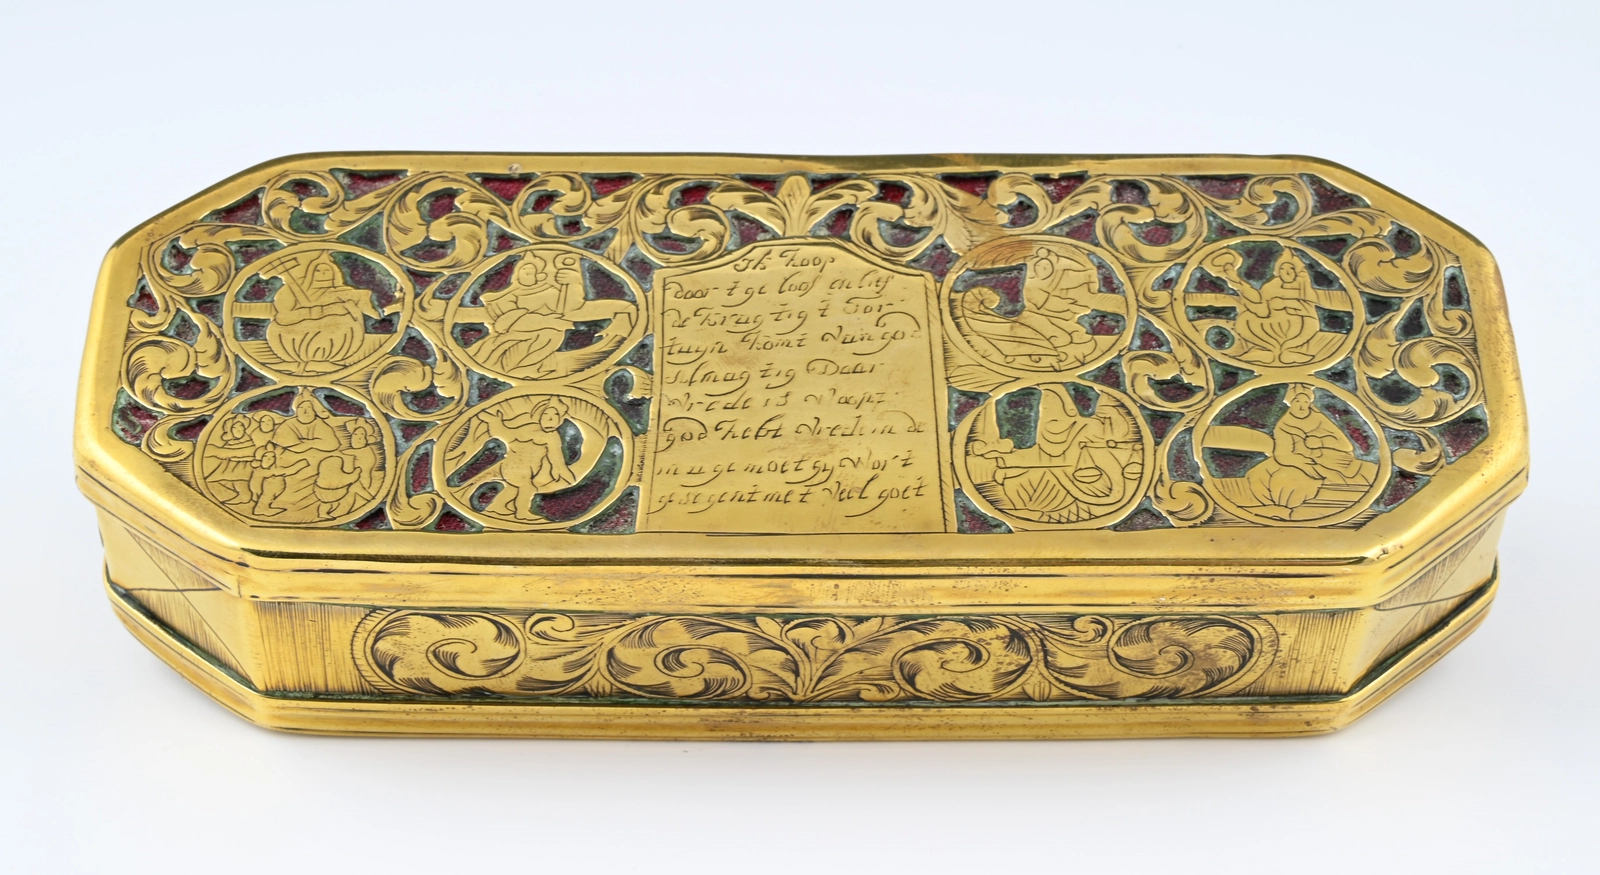 Ik hoop
door t ge loof en lief
de kragtig t For
tuyn komt van god
almagtig Daar
vrede is voopt
god hebt vrede in de
in u ge moet gy wort
gesegent met veel goet